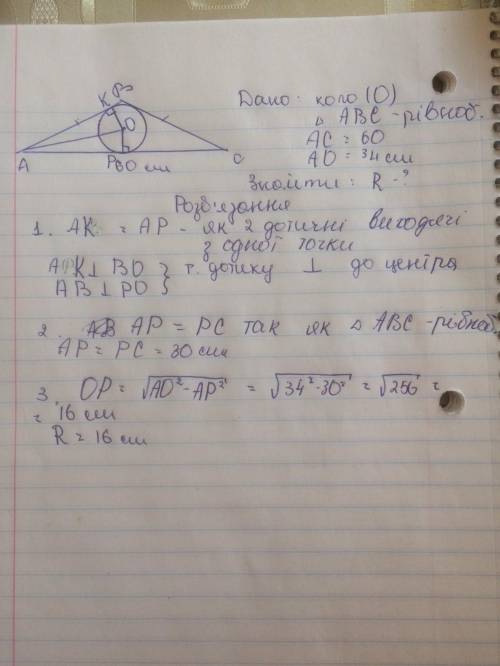 Дано: коло (О)
△ ABC - рівноб.
AC = 60
AO = 34 см
Знайти: R - ?
K B
O
A P 60 см C
Розв'язання
1. AK = AP - як 2 дотичні виходячі
з одної точки
K ⊥ BO } т. дотику ⊥ до центра
AB ⊥ PO }
2. AP = PC так як △ ABC - рівноб
AP = PC = 30 см
3. OP = √AO² - AP² = √34² - 30² = √256 =
= 16 см
R = 16 см